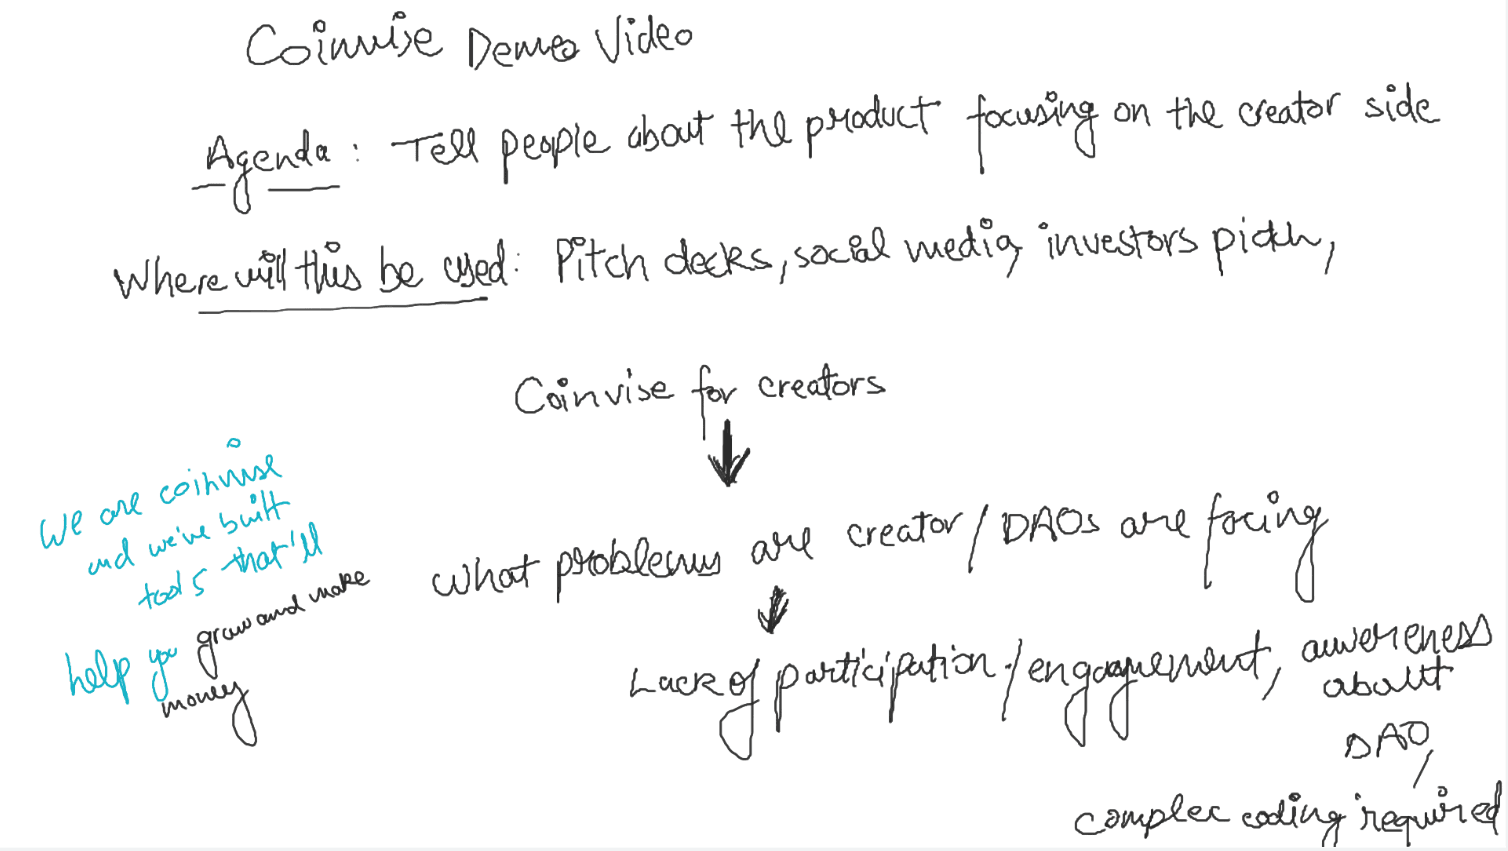 Coinvise Demo Video
Agenda: Tell people about the product focusing on the creator side
Where will this be used: Pitch decks, social media, investors pitch,
Coinvise for creators
We are coinvise
and we've built
tools that'll
help you grow and make
money
What problems are creator/DAOs are facing
Lack of participation/engagement, awereness
aboutt
DAO,
complec coding required